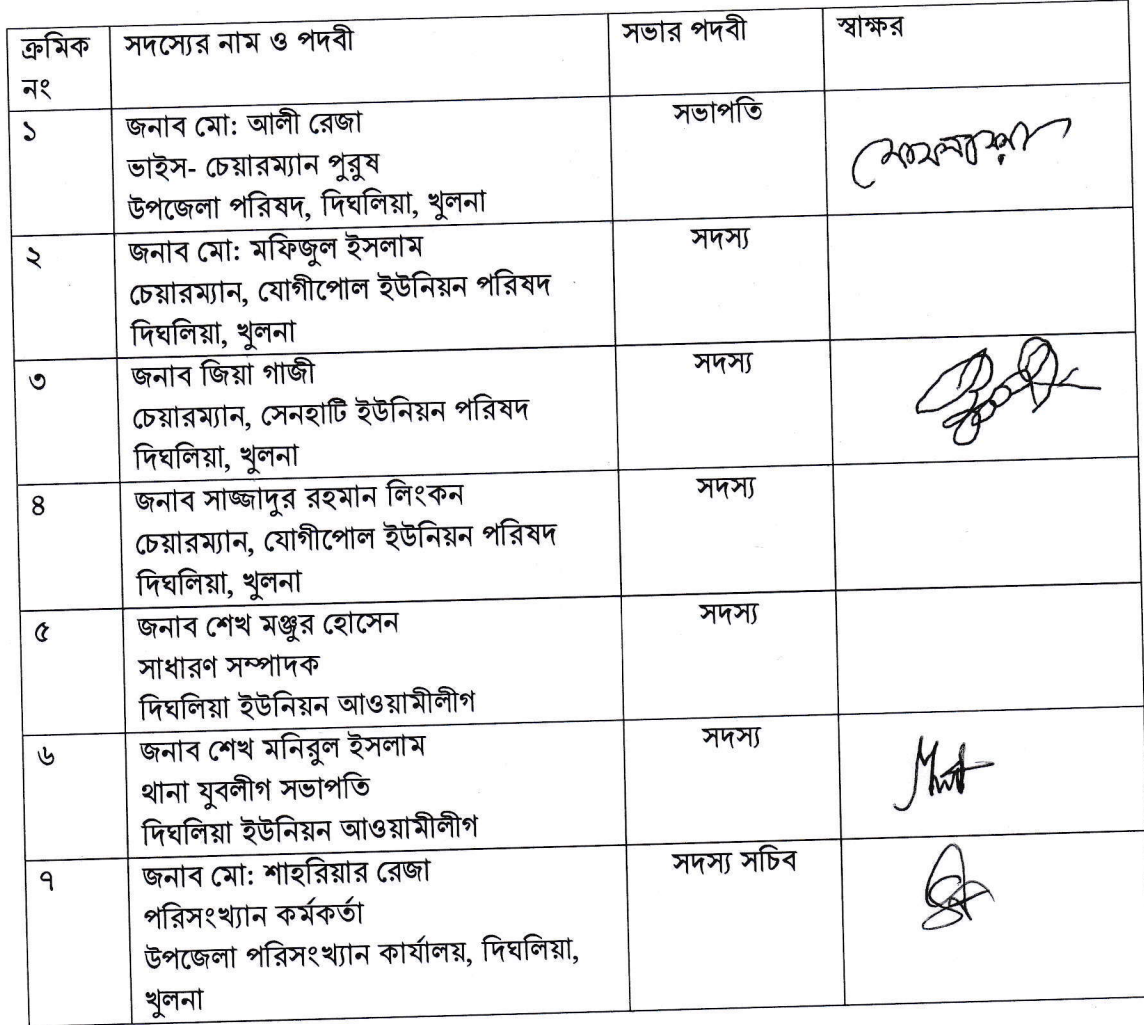 ক্রমিক নং সদস্যের নাম ও পদবী সভার পদবী স্বাক্ষর
১ জনাব মো: আলী রেজা সভাপতি
ভাইস- চেয়ারম্যান পুরুষ
উপজেলা পরিষদ, দিঘলিয়া, খুলনা
২ জনাব মো: মফিজুল ইসলাম সদস্য
চেয়ারম্যান, যোগীপোল ইউনিয়ন পরিষদ
দিঘলিয়া, খুলনা
৩ জনাব জিয়া গাজী সদস্য
চেয়ারম্যান, সেনহাটি ইউনিয়ন পরিষদ
দিঘলিয়া, খুলনা
৪ জনাব সাজ্জাদুর রহমান লিংকন সদস্য
চেয়ারম্যান, যোগীপোল ইউনিয়ন পরিষদ
দিঘলিয়া, খুলনা
৫ জনাব শেখ মঞ্জুর হোসেন সদস্য
সাধারণ সম্পাদক
দিঘলিয়া ইউনিয়ন আওয়ামীলীগ
৬ জনাব শেখ মনিরুল ইসলাম সদস্য
থানা যুবলীগ সভাপতি
দিঘলিয়া ইউনিয়ন আওয়ামীলীগ
৭ জনাব মো: শাহরিয়ার রেজা সদস্য সচিব
পরিসংখ্যান কর্মকর্তা
উপজেলা পরিসংখ্যান কার্যালয়, দিঘলিয়া,
খুলনা